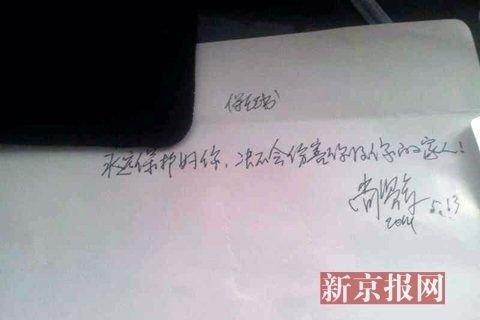 保证书
永远保护好你，决不会伤害你及你的家人！
5.13
2014
新京报网